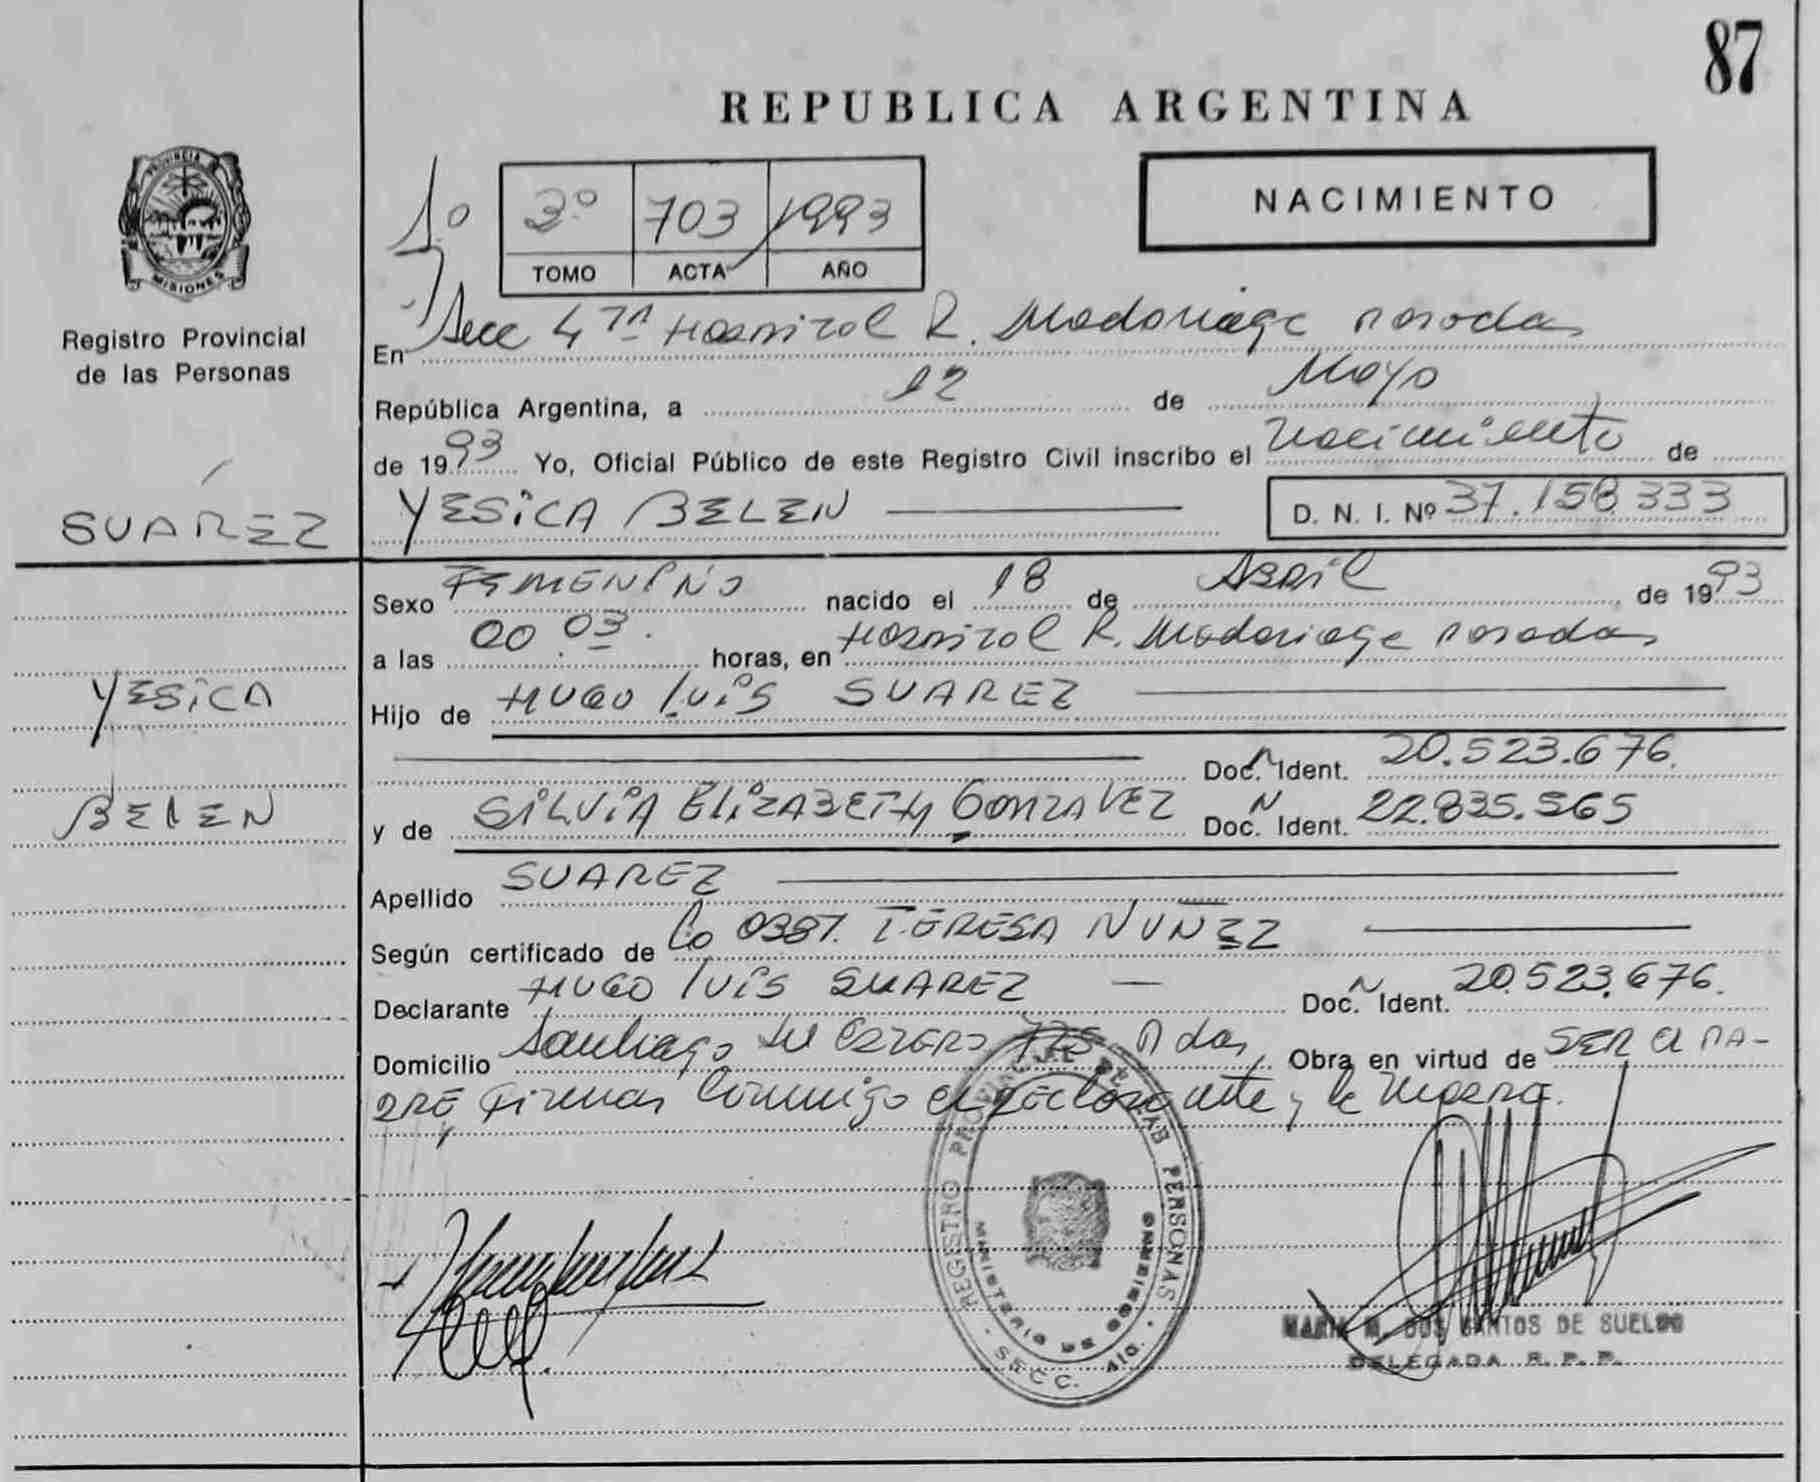 87
REPUBLICA ARGENTINA
NACIMIENTO
1º 3º 703 1993
TOMO ACTA AÑO
PROVINCIA DE MISIONES
Registro Provincial
de las Personas
En Secc 4ta Hospital R. Madariaga Posadas
República Argentina, a 12 de Mayo
de 1993 Yo, Oficial Público de este Registro Civil inscribo el Nacimiento de
SUAREZ
YESICA BELEN
D. N. I. Nº 37.158.333
Sexo FEMENINO nacido el 18 de ABRIL de 1993
a las 00 03. horas, en Hospital R. Madariaga Posadas
YESICA
Hijo de HUGO LUIS SUAREZ
Doc. N Ident. 20.523.676.
BELEN
y de SILVIA ELIZABETH GONZALEZ Doc. N Ident. 22.835.565
Apellido SUAREZ
Según certificado de Co 0387. TERESA NUÑEZ
Declarante HUGO LUIS SUAREZ Doc. N Ident. 20.523.676.
Domicilio Santiago del Estero 775 Pdas, Obra en virtud de SER el PA-
DRE, firman conmigo el declarante y la
REGISTRO PROVINCIAL DE LAS PERSONAS
MINISTERIO DE GOBIERNO
SECC. 4ta.
MARIA M. DOS SANTOS DE SUELDO
DELEGADA R. P. P.